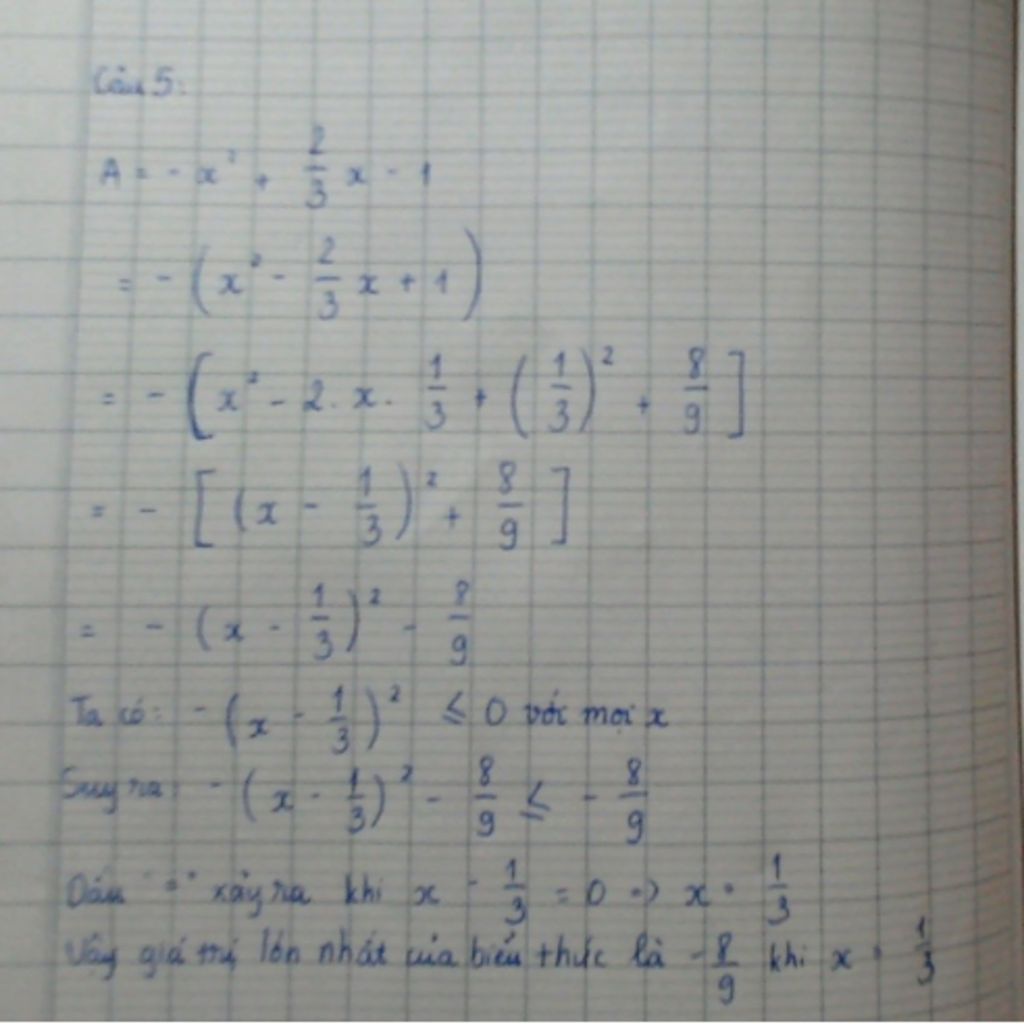 Câu 5:
A = - x² + 2/3 x - 1
= - ( x² - 2/3 x + 1 )
= - [ x² - 2. x. 1/3 + ( 1/3 )² + 8/9 ]
= - [ ( x - 1/3 )² + 8/9 ]
= - ( x - 1/3 )² - 8/9
Ta có: - ( x - 1/3 )² ≤ 0 với mọi x
Suy ra: - ( x - 1/3 )² - 8/9 ≤ - 8/9
Dấu "=" xảy ra khi x - 1/3 = 0 => x = 1/3
Vậy giá trị lớn nhất của biểu thức là - 8/9 khi x = 1/3